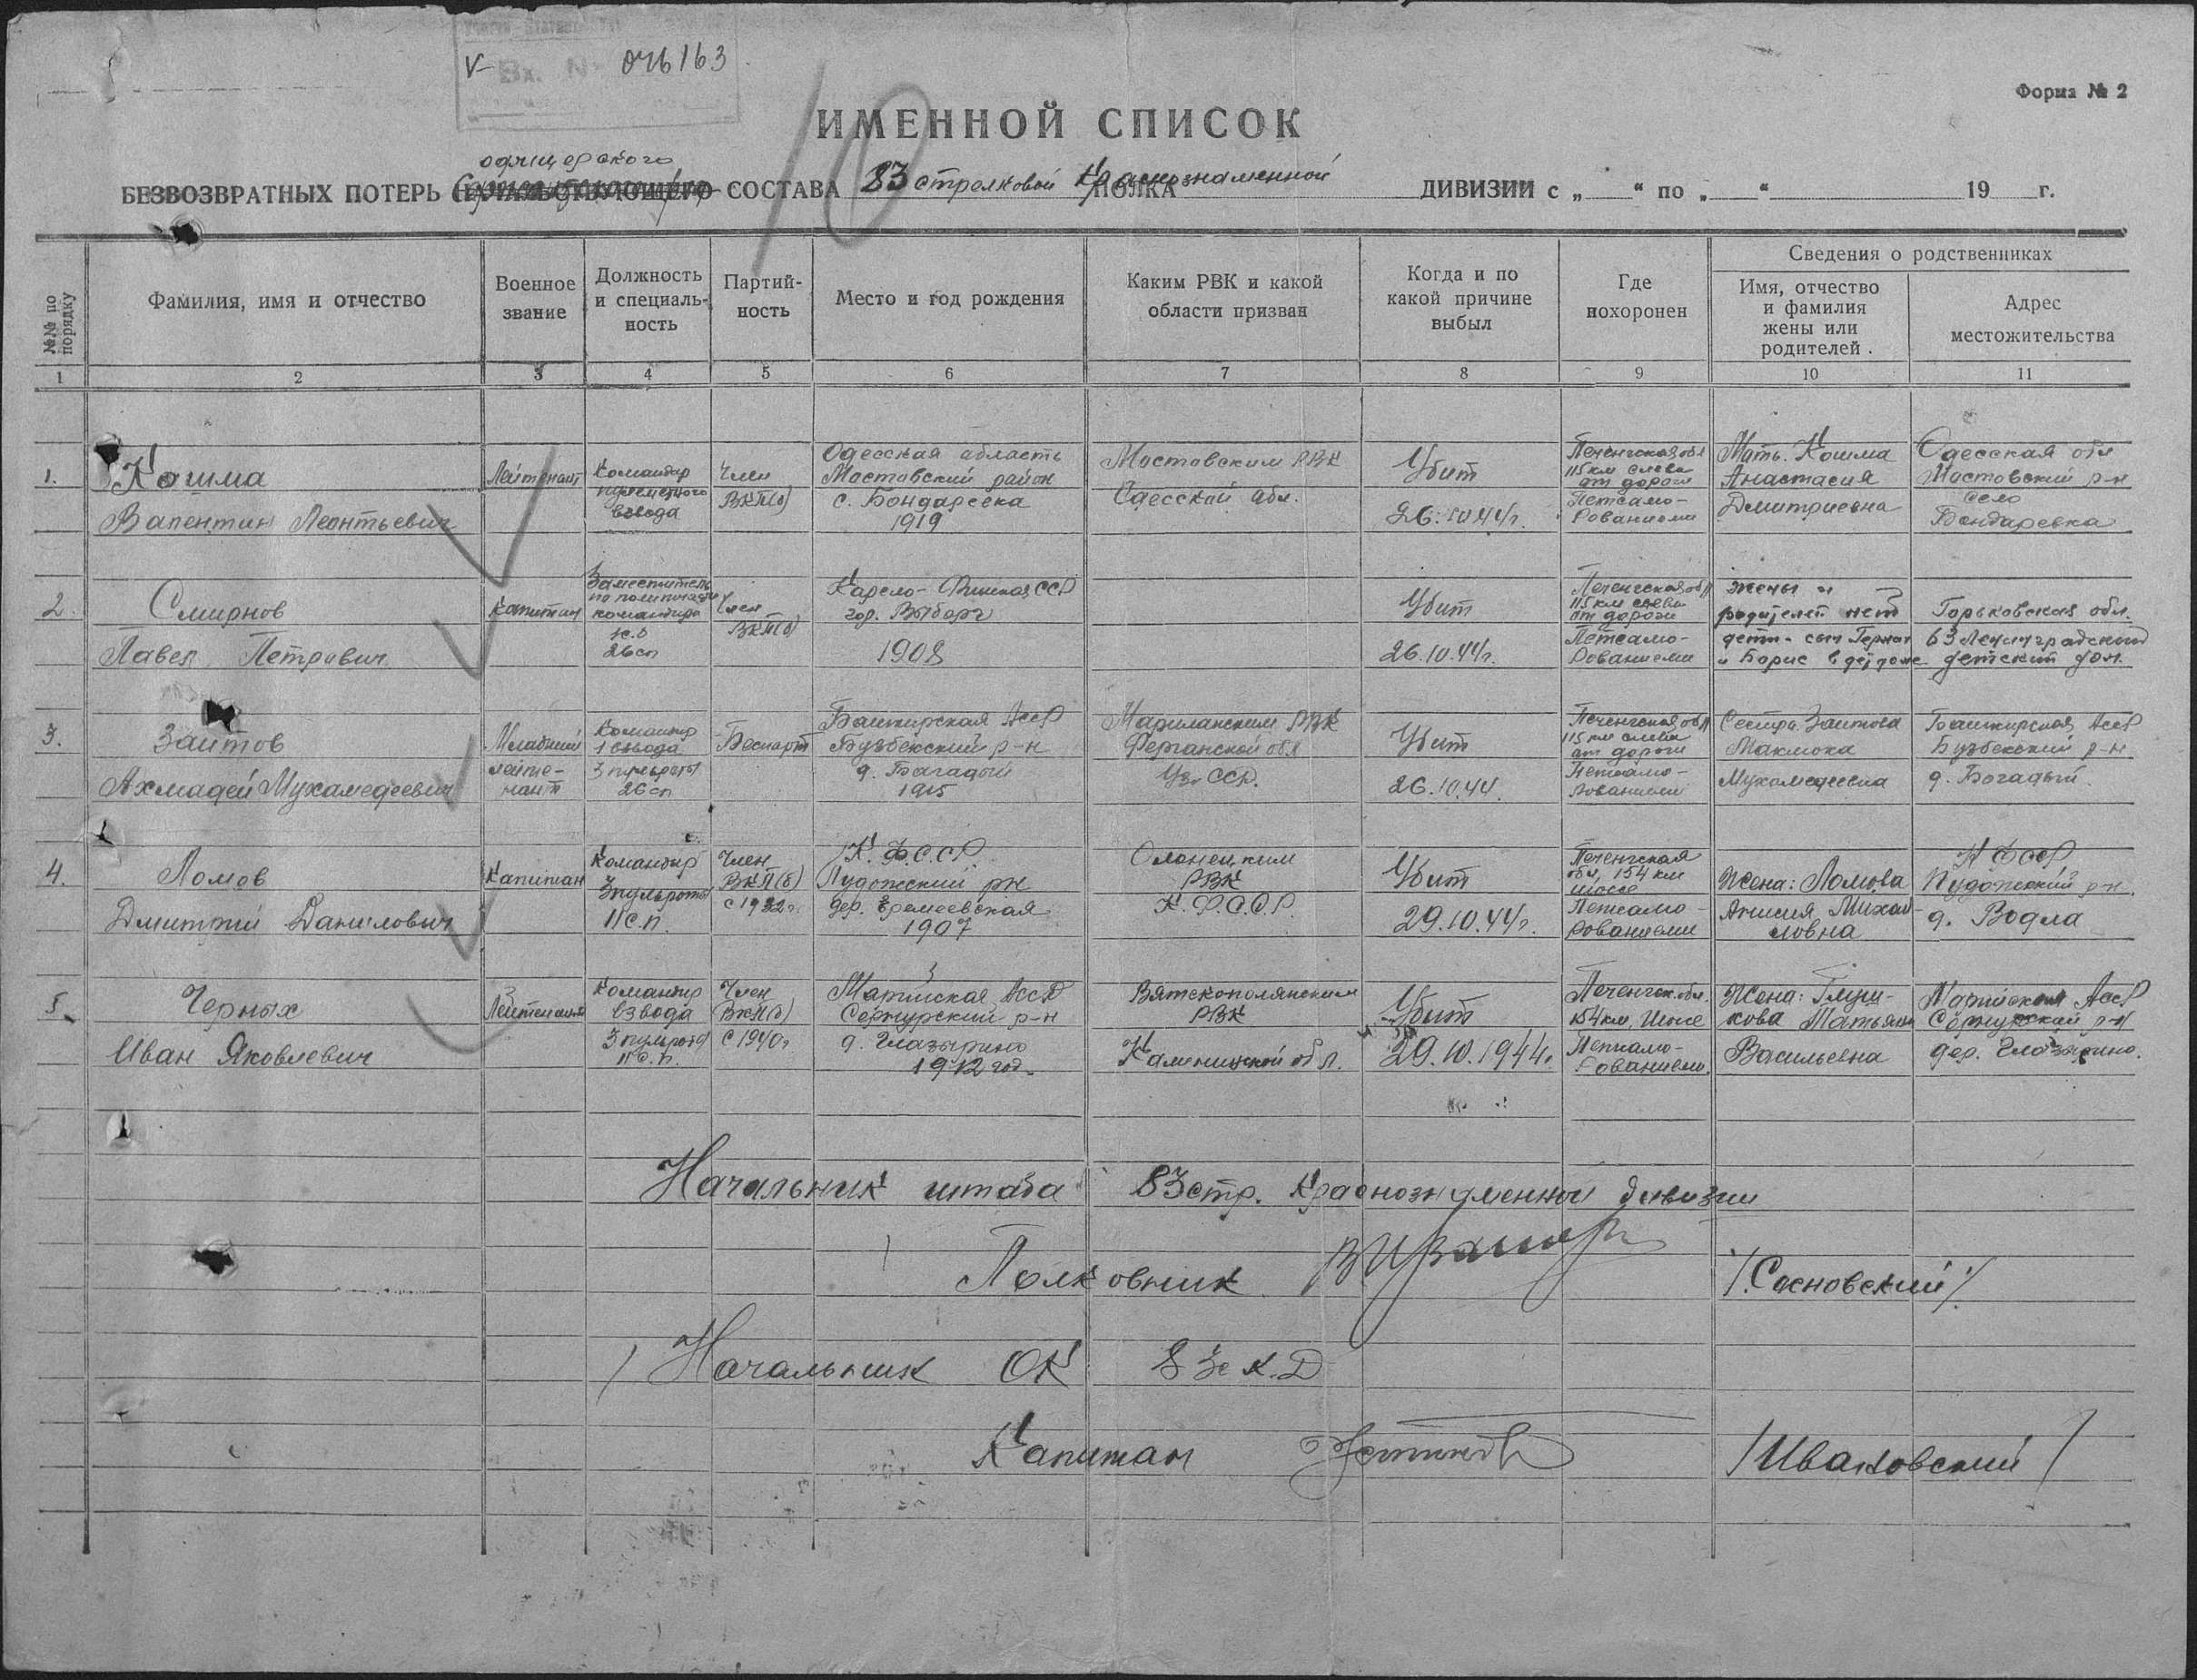 Вх. № 046163
10
Форма № 2
ИМЕННОЙ СПИСОК
офицерского
БЕЗВОЗВРАТНЫХ ПОТЕРЬ СОСТАВА 83 стрелковой Краснознаменной ПОЛКА ДИВИЗИИ с „ “ по „ “ 19 г.
№№ по порядку
Фамилия, имя и отчество
Военное звание
Должность и специаль-ность
Партий-ность
Место и год рождения
Каким РВК и какой области призван
Когда и по какой причине выбыл
Где похоронен
Сведения о родственниках
Имя, отчество и фамилия жены или родителей.
Адрес местожительства
1 2 3 4 5 6 7 8 9 10 11
1.
Кошма
Валентин Леонтьевич
Лейтенант
Командир
пулеметного
взвода
Член
ВКП(б)
Одесская область
Мостовский район
с. Бондаревка
1919
Мостовским РВК
Одесской обл.
Убит
26.10.44г.
Печенгская обл
115 км слева
от дороги
Петсамо-
Рованиеми
Мать. Кошма
Анастасия
Дмитриевна
Одесская обл
Мостовский р-н
село
Бондаревка
2.
Смирнов
Павел Петрович
Капитан
Заместитель
по политчасти
командира
26 сп
Член
ВКП(б)
Карело-Финская ССР
гор. Выборг
1908
Убит
26.10.44г.
Печенгская обл
115 км слева
от дороги
Петсамо-
Рованиеми
жены и
родителей нет
дети - сын Герман
и Борис в детдоме
Горьковская обл.
63 Ленинградский
детский дом.
3.
Заитов
Ахмадей Мухамедеевич
Младший
лейте-
нант
Командир
1 взвода
3 пульроты
26 сп
Беспарт
Башкирская АССР
Бузбекский р-н
д. Багадый
1915
РВК
Ферганской обл
Уз. ССР.
Убит
26.10.44.
Печенгская обл
115 км слева
от дороги
Петсамо-
Рованиеми
Сестра Заитова
Мухамедеевна
Башкирская АССР
Бузбекский р-н
д. Богадый.
4.
Ломов
Дмитрий Данилович
Капитан
Командир
3 пульроты
11 с.п.
Член
ВКП(б)
К.Ф.С.С.Р.
Пудожский рн
дер. Еремеевская
1907
Олонецким
РВК
К.Ф.С.С.Р.
Убит
29.10.44г.
Печенгская
обл, 154 км
шоссе
Петсамо-
Рованиеми
Жена: Ломова
Анисия Михай-
ловна
К ФССР
Пудожский р-н.
д. Водла
5.
Черных
Иван Яковлевич
Лейтенант
Командир
взвода
3 пульроты
11 с.п.
Член
ВКП(б)
с 1940г
Марийская АССР
Сернурский р-н
д. Глазырино
1912 год.
Вятскополянским
РВК
Калининской обл.
Убит
29.10.1944г
Печенгск. обл.
154 км. Шоссе
Петсамо-
Рованиеми.
Жена: Глуш-
кова Татьяна
Васильевна
Марийская АССР
Сернурский р-н
дер. Глазырино.
Начальник штаба 83 стр. Краснознаменной дивизии
Полковник /Сосновский/
Начальник ОК 83с к.Д
Капитан /Ивановский/